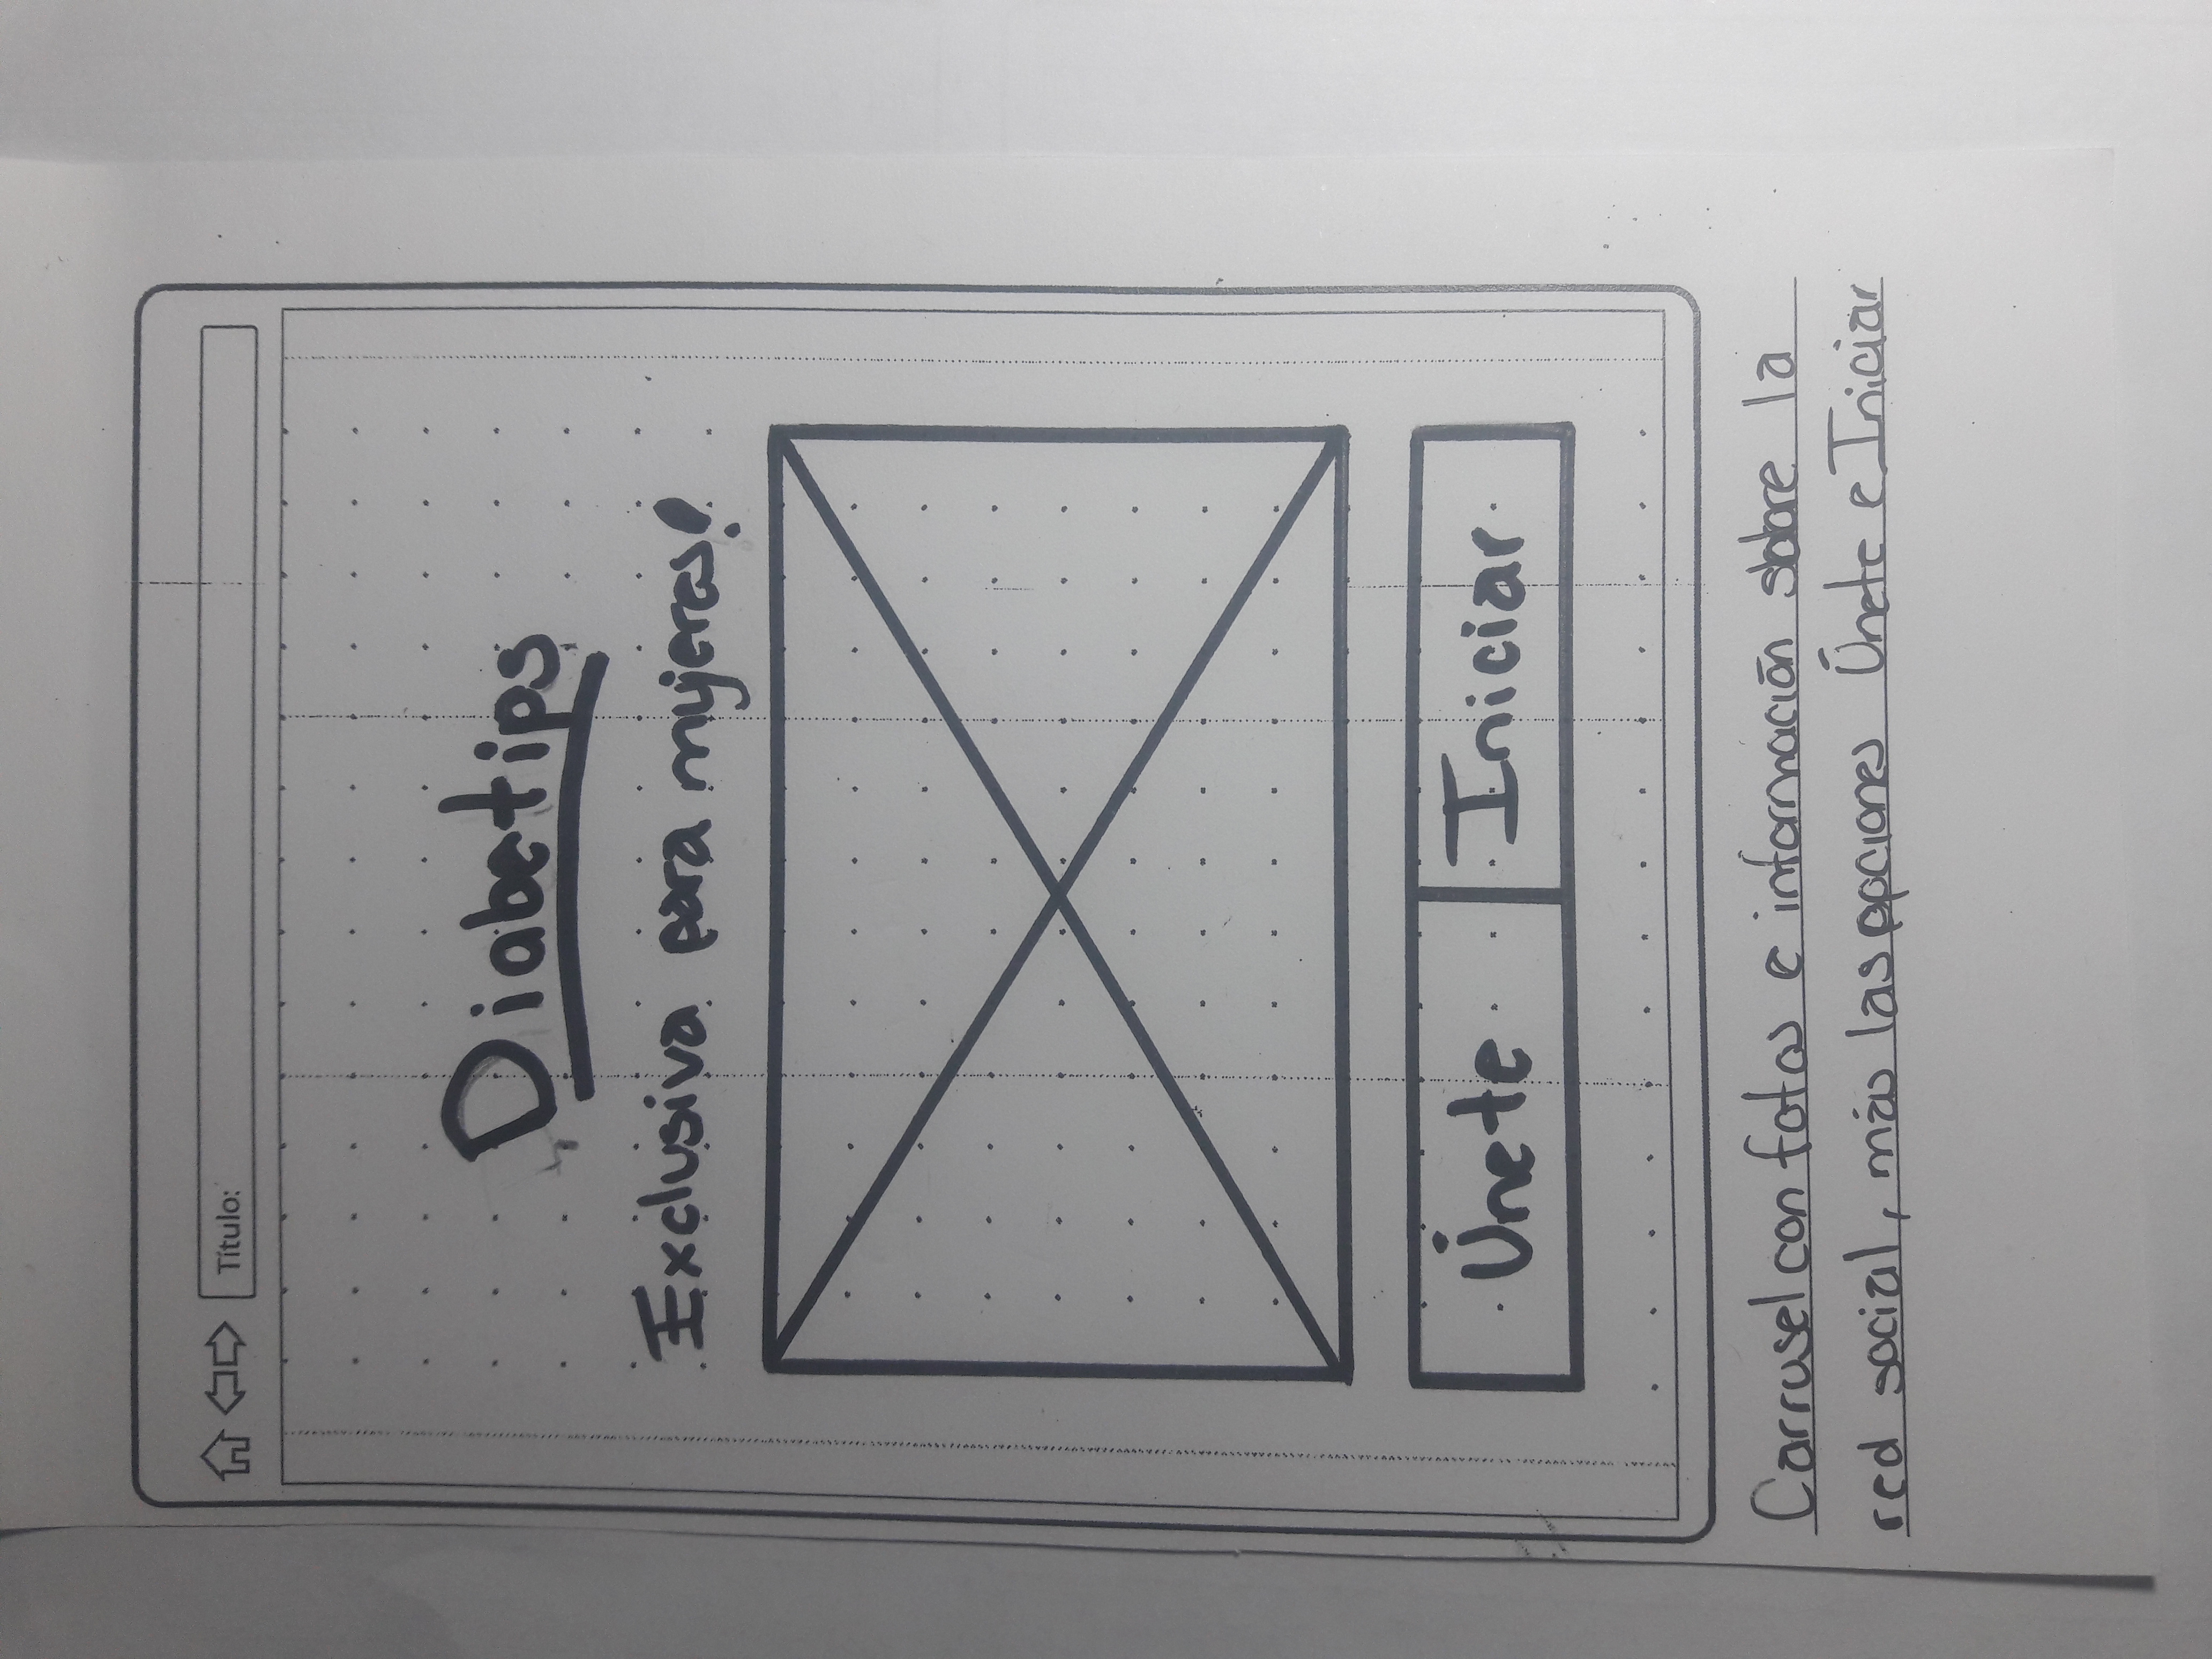 Título:
Diabetips
Exclusiva para mujeres!
Únete Iniciar
Carrusel con fotos e información sobre la
red social, más las opciones Únete e Iniciar